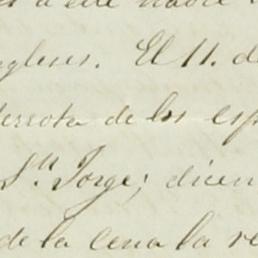 a este
ingleses. El 11. de
derrota de los esp
Sn. Jorge; dicen
de la cena la re